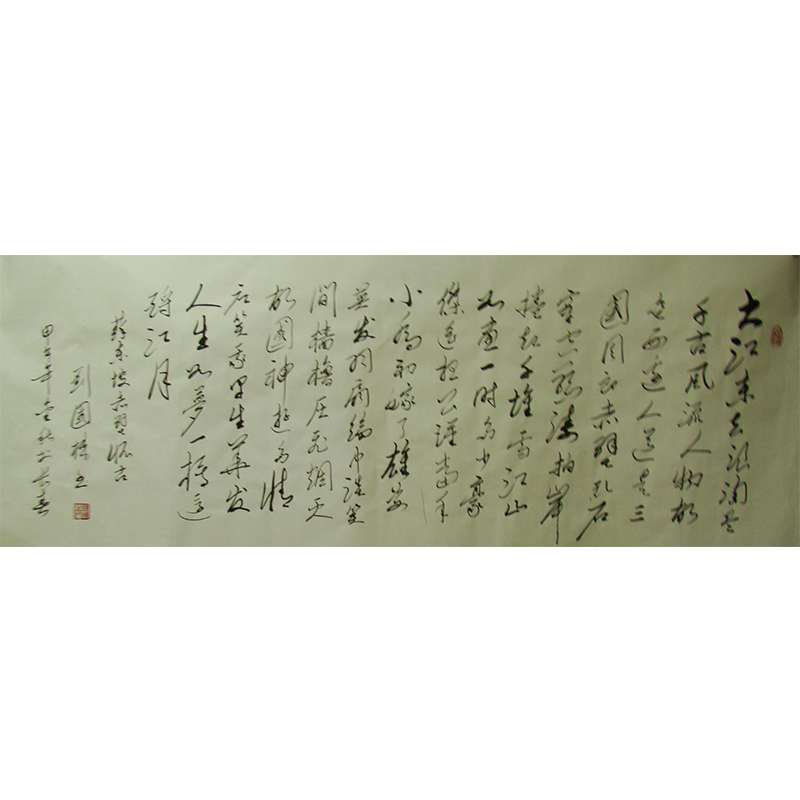 大江東去浪淘尽
千古風流人物故
壘西邊人道是三
國周郎赤壁乱石
穿空驚濤拍岸
捲起千堆雪江山
如画一時多少豪
傑遥想公瑾當年
小喬初嫁了雄姿
英发羽扇綸巾談笑
間檣櫓灰飛烟灭
故國神遊多情
应笑我早生華发
人生如夢一樽還
酹江月
蘇東坡赤壁懷古
刘國书
甲午年金秋于长春